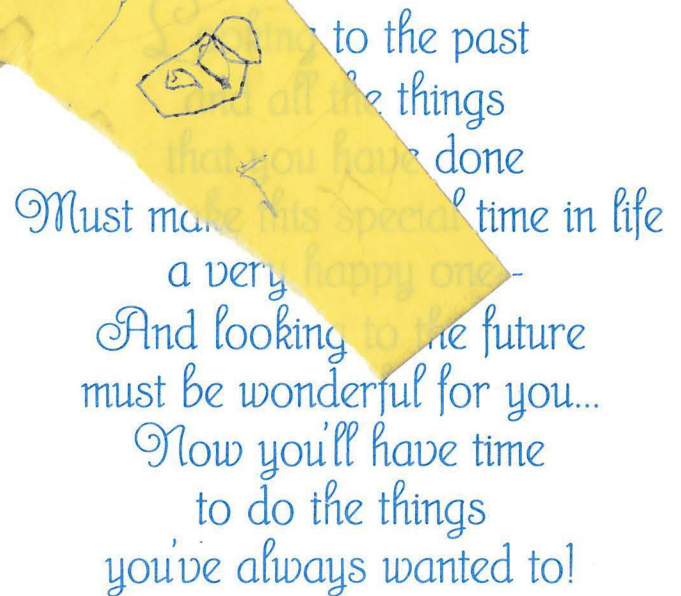 Looking to the past
and all the things
that you have done
Must make this special time in life
a very happy one -
And looking to the future
must be wonderful for you...
Now you'll have time
to do the things
you've always wanted to!